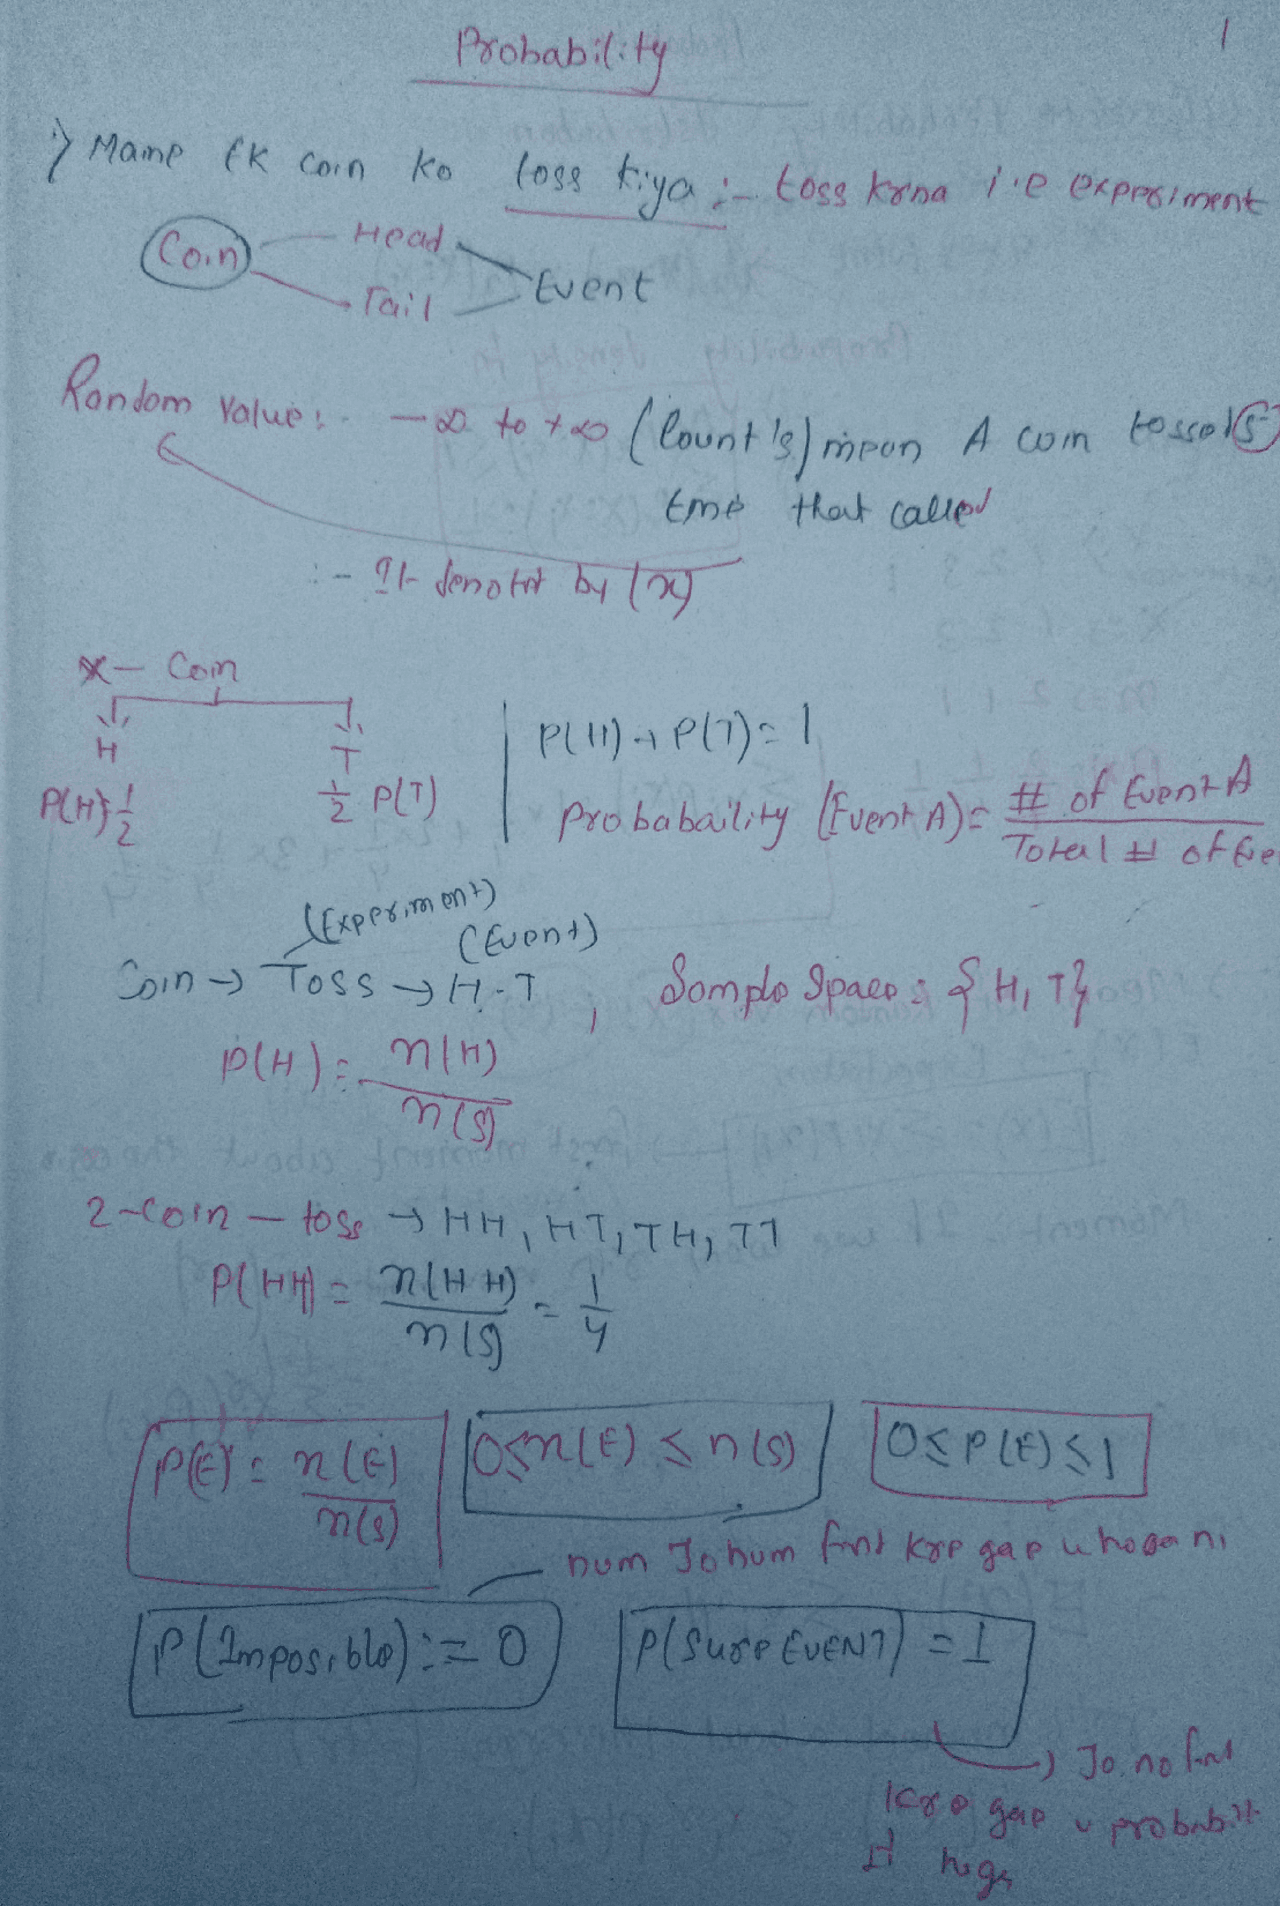 Probability
1
i) Mame Ek Coin ko toss kiya :- toss krna i.e experiment
Coin
Head
Tail
Event
Random value :- -∞ to +∞ (Count's) mean A coin tossed 5
tme that called
:- It denotd by (x)
x - Coin
H T
P(H) = 1/2 1/2 P(T)
P(H) + P(T) = 1
Probabaility (Event A) = # of Event A / Total # of Eve
(Experiment)
(Event)
Coin → Toss → H-T , Sample Space = {H, T}
P(H) = n(H) / n(S)
2-Coin - toss → HH, HT, TH, TT
P(HH) = n(HH) / n(S) = 1/4
P(E) = n(E) / n(S)
0 ≤ n(E) ≤ n(S)
0 ≤ P(E) ≤ 1
num Jo hum fint kre gae u hoga ni
P(Imposible) := 0
P(Sure EVENT) = 1
Jo
kre gae u probabilt